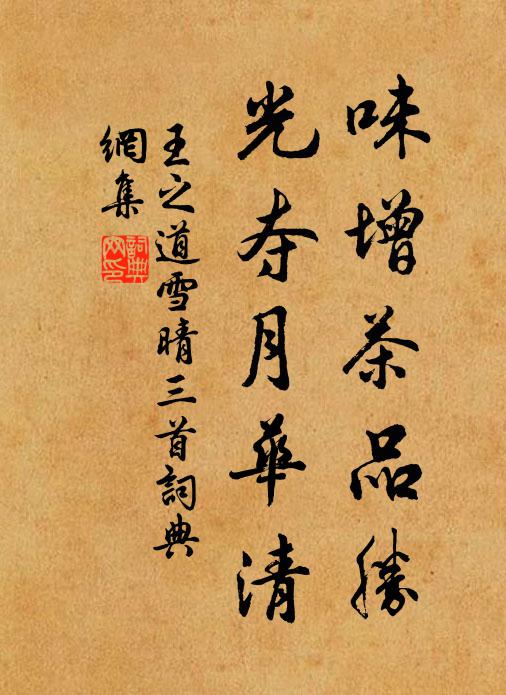 味增茶品勝
光夺月華清
王之道雪晴三首詞典
網集
詞典
网印